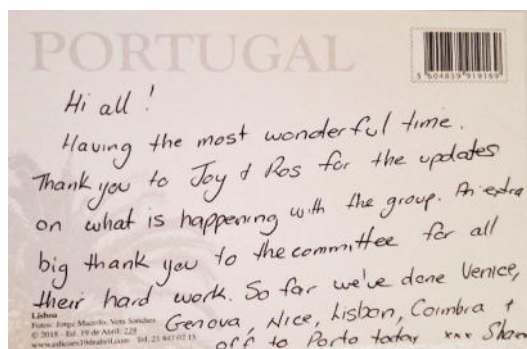 PORTUGAL
5 604839 919169
Hi all !
Having the most wonderful time.
Thank you to Joy & Ros for the updates
on what is happening with the group. An extra
big thank you to the committee for all
their hard work. So far we've done Venice,
Genova, Nice, Lisbon, Coimbra +
off to Porto today xxx
Lisboa
© 2018 - Ed. 19 de Abril: 228
www.edicoes19deabril.com Tel. 21 847 02 15